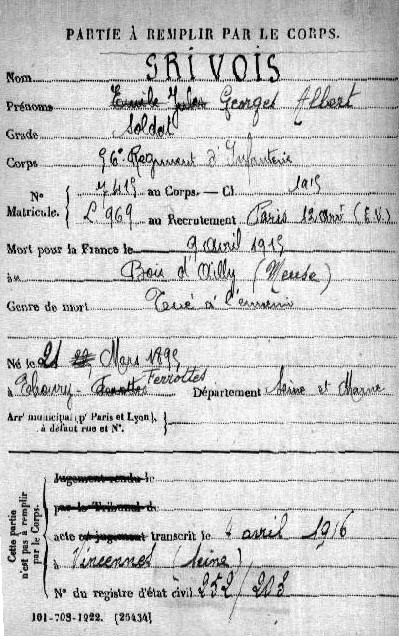 PARTIE À REMPLIR PAR LE CORPS.
Nom SRIVOIS
Prénoms Emile Jules Georges Albert
Grade Soldat
Corps 56e Regiment d'Infanterie
No Matricule. 7419 au Corps. — Cl. 1915
L 969 au Recrutement Paris 12 arrt (E.V.)
Mort pour la France le 9 avril 1915
à Bois d'Ailly (Meuse)
Genre de mort Tué à l'ennemi
Né le 21 Mars 1895
à Thoury-Ferrottes Département Seine et Marne
Arrt municipal (pr Paris et Lyon), à défaut rue et No.
Cette partie n'est pas à remplir par le Corps.
Jugement rendu le
par le Tribunal de
acte ou jugement transcrit le 4 avril 1916
à Vincennes (Seine)
No du registre d'état civil 252/203
101-708-1922. [25434]